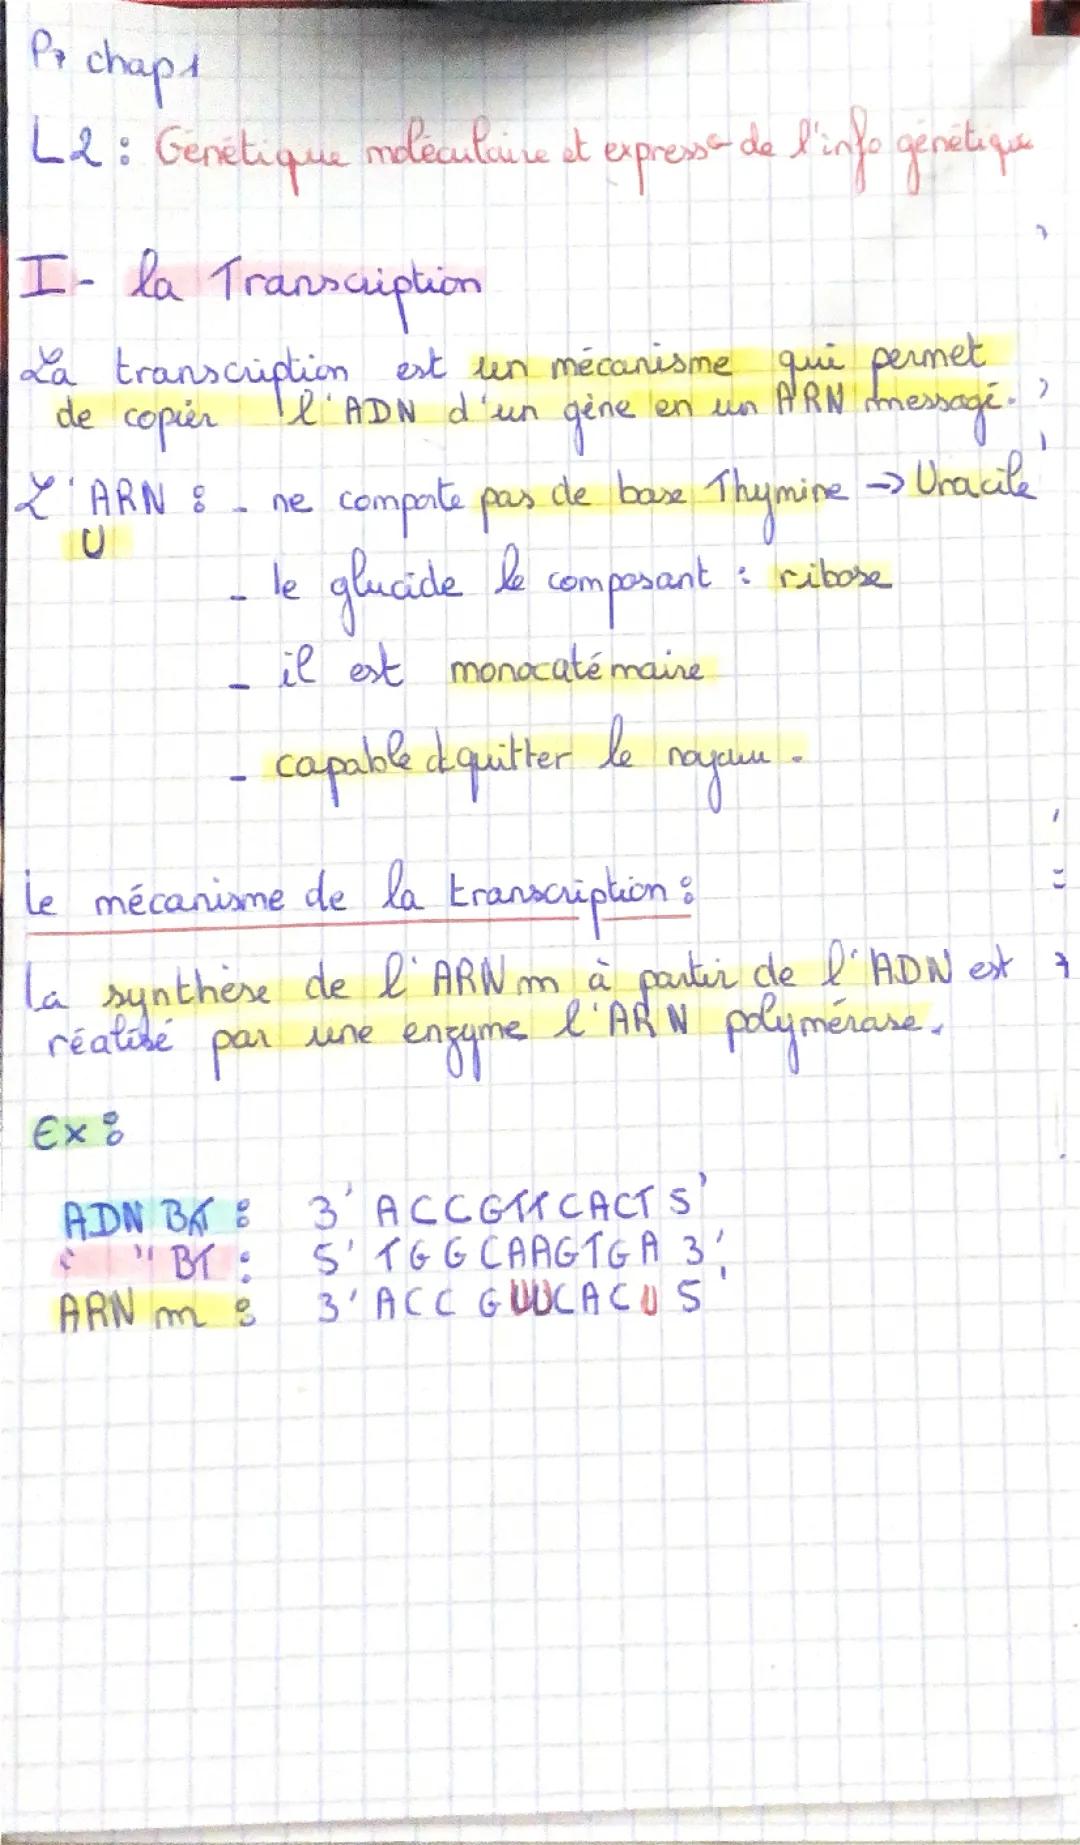 chap 1
L2 : Génétique moléculaire et express° de l'info génétique
I - la Transcription
La transcription est un mécanisme qui permet
de copier l'ADN d'un gène en un ARN messagé.
L'ARN : - ne comporte pas de base Thymine → Uracile
U
- le glucide le composant : ribose
- il est monocaté maire
- capable d quitter le noyau.
Le mécanisme de la transcription :
La synthèse de l'ARN m à partir de l'ADN est
réalisé par une enzyme l'ARN polymérase.
Ex :
ADN : 3' ACCGTTCACT 5'
" BT : 5' TGGCAAGTGA 3'
ARN m : 3' ACC GUUCACU 5'